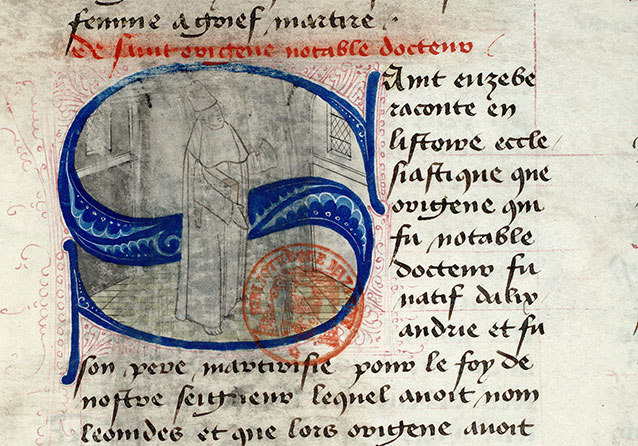 femme a grief martire .
de saint origene notable docteur
Saint euzebe
raconte en
listoire eccle
siastique que
origene qui
fu notable
docteur fu
natif dalix
andrie et fu
son pere martirisie pour le foy de
nostre seigneur lequel avoit nom
leonides et que lors origene avoit